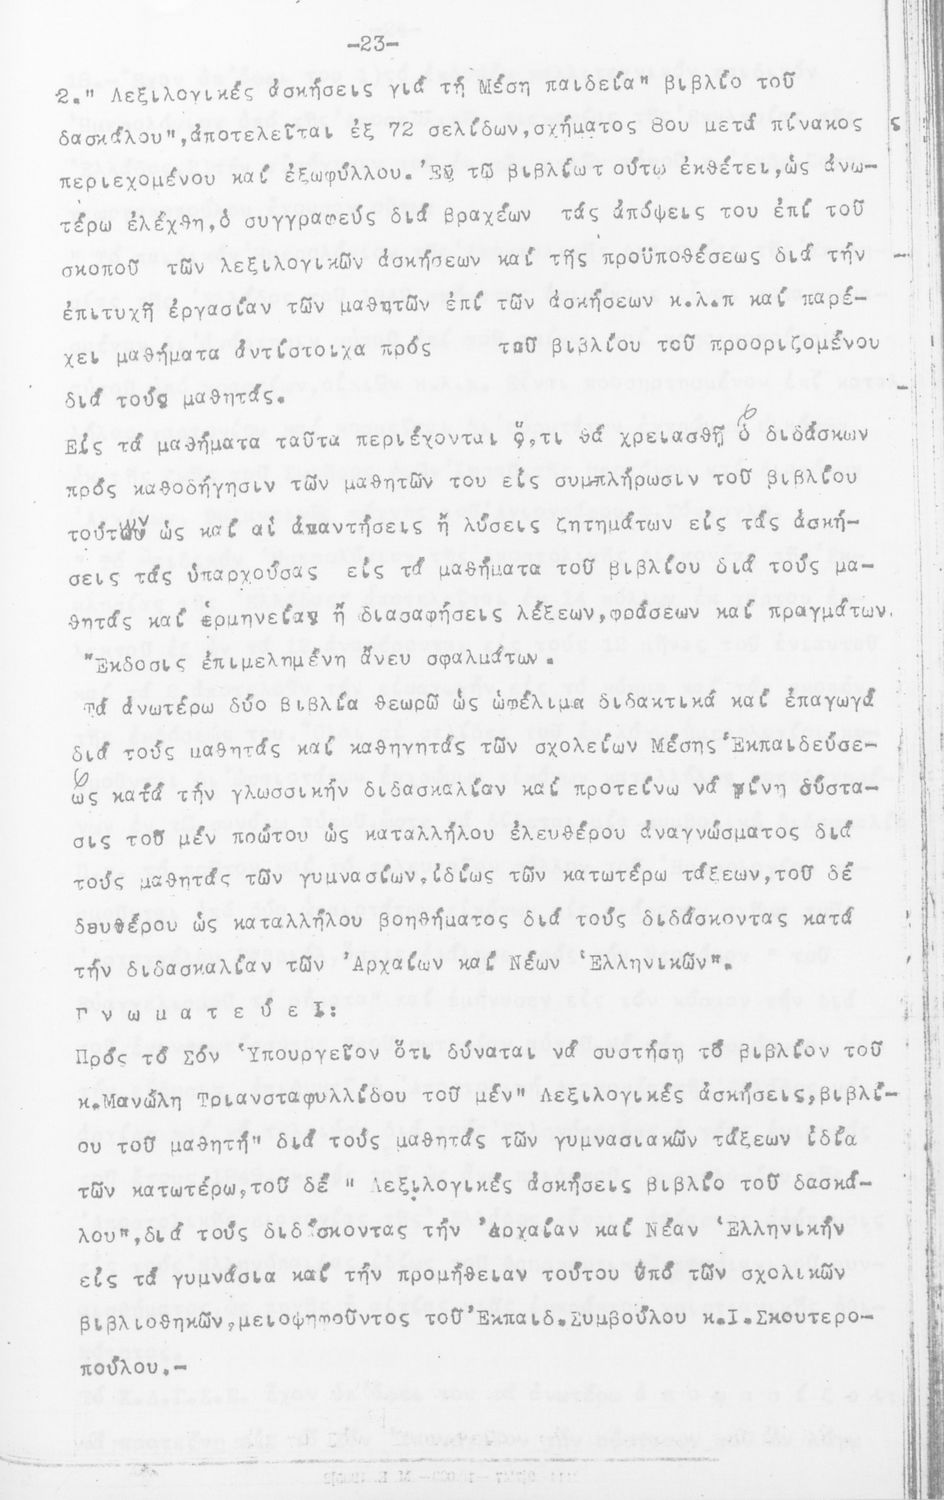 -23-
2." Λεξιλογικές ἀσκήσεις γιά τή Μέση παιδεία" βιβλίο τοῦ
δασκάλου",ἀποτελεῖται ἐξ 72 σελίδων,σχήματος 8ου μετά πίνακος
περιεχομένου καί ἐξωφύλλου. Ἐν τῶ βιβλίωτ ούτω ἐκθέτει,ὡς ἀνω-
τέρω ἐλέχθη,ὁ συγγραφεύς διά βραχέων τάς ἀπόψεις του ἐπί τοῦ
σκοποῦ τῶν λεξιλογικῶν ἀσκήσεων καί τῆς προϋποθέσεως διά τήν
ἐπιτυχῆ ἐργασίαν τῶν μαθητῶν ἐπί τῶν ἀσκήσεων κ.λ.π καί παρέ-
χει μαθήματα ἀντίστοιχα πρός τοῦ βιβλίου τοῦ προοριζομένου
διά τούς μαθητάς.
Εἰς τά μαθήματα ταῦτα περιέχονται ὅ,τι θά χρειασθῆ ὁ διδάσκων
πρός καθοδήγησιν τῶν μαθητῶν του εἰς συμπλήρωσιν τοῦ βιβλίου
τούτων ὡς καί αἱ ἀπαντήσεις ἤ λύσεις ζητημάτων εἰς τάς ἀσκή-
σεις τάς ὑπαρχούσας εἰς τά μαθήματα τοῦ βιβλίου διά τούς μα-
θητάς καί ἑρμηνείας ἤ διασαφήσεις λέξεων,φράσεων καί πραγμάτων.
Ἔκδοσις ἐπιμελημένη ἄνευ σφαλμάτων.
Τά ἀνωτέρω δύο βιβλία θεωρῶ ὡς ὠφέλιμα διδακτικά καί ἐπαγωγά
διά τούς μαθητάς καί καθηγητάς τῶν σχολείων Μέσης Ἐκπαιδεύσε-
ως κατά τήν γλωσσικήν διδασκαλίαν καί προτείνω νά γίνη σύστα-
σις τοῦ μέν πρώτου ὡς καταλλήλου ἐλευθέρου ἀναγνώσματος διά
τούς μαθητάς τῶν γυμνασίων,ἰδίως τῶν κατωτέρω τάξεων,τοῦ δέ
δευτέρου ὡς καταλλήλου βοηθήματος διά τούς διδάσκοντας κατά
τήν διδασκαλίαν τῶν Ἀρχαίων καί Νέων Ἑλληνικῶν".
Γ ν ω μ α τ ε ύ ε ι:
Πρός τό Σόν Ὑπουργεῖον ὅτι δύναται νά συστήση τό βιβλίον τοῦ
κ.Μανώλη Τριανσταφυλλίδου τοῦ μέν" Λεξιλογικές ἀσκήσεις,βιβλί-
ου τοῦ μαθητή" διά τούς μαθητάς τῶν γυμνασιακῶν τάξεων ἰδία
τῶν κατωτέρω,τοῦ δέ " Λεξιλογικές ἀσκήσεις βιβλίο τοῦ δασκά-
λου",διά τούς διδάσκοντας τήν Ἀρχαίαν καί Νέαν Ἑλληνικήν
εἰς τά γυμνάσια καί τήν προμήθειαν τούτου ὑπό τῶν σχολικῶν
βιβλιοθηκῶν,μειοψηφοῦντος τοῦ Ἐκπαιδ.Συμβούλου κ.Ι.Σκουτερο-
πούλου.-